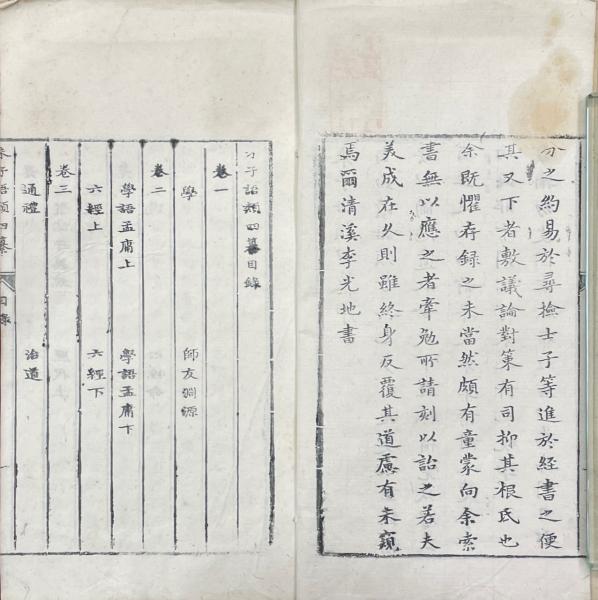 分之約易於尋撿士子等進於經書之便
其又下者敷議論對策有司抑其根氐也
余既懼存録之未當然頗有童蒙向余索
書無以應之者牽勉所請刻以詒之若夫
美成在久則雖終身反覆其道慮有未窺
焉爾清溪李光地書
子語類四纂目錄
卷一
學 師友淵源
卷二
學語孟庸上 學語孟庸下
六經上 六經下
卷三
通禮 治道
朱子語類四纂 目錄